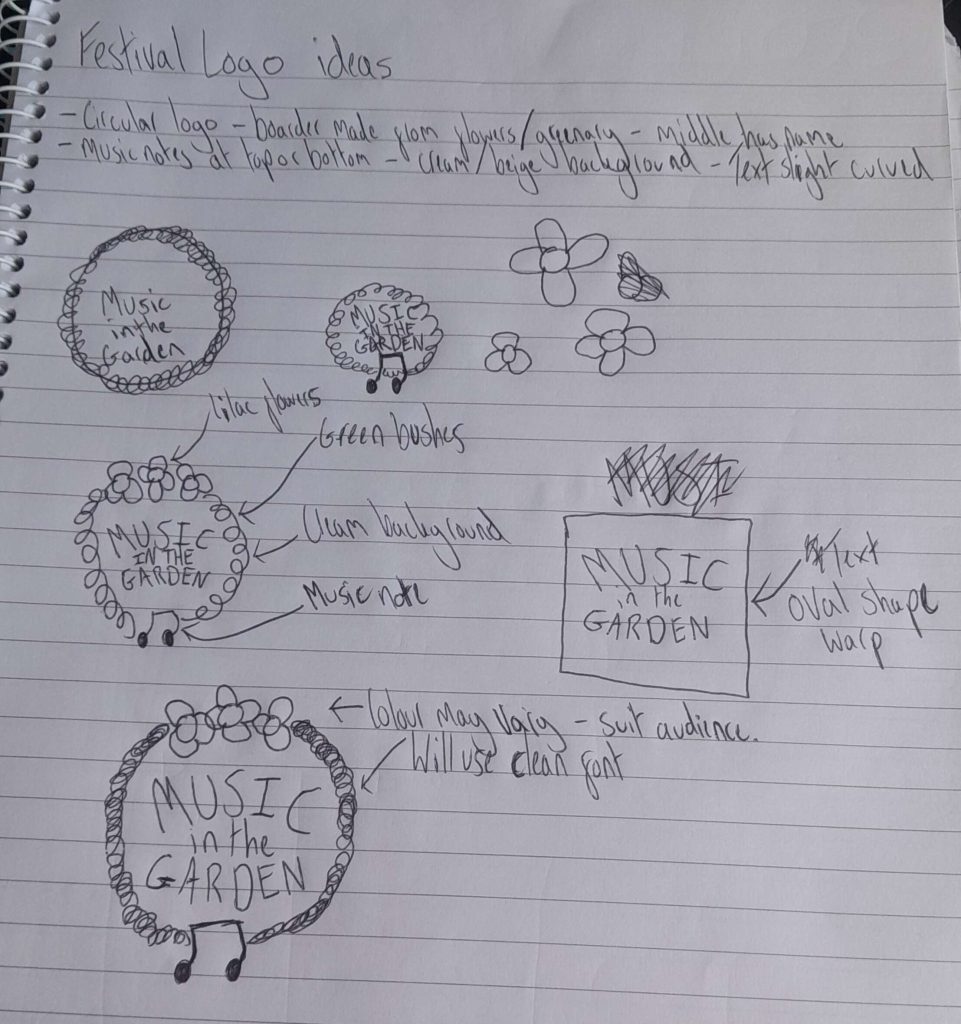 Festival Logo ideas
- Circular logo - boarder made from flowers/greenary - middle has name
- Music notes at top or bottom - cream/beige background - Text slight curved
Music
in the
Garden
MUSIC
IN THE
GARDEN
lilac flowers
Green bushes
MUSIC
IN THE
GARDEN
Cream background
Music note
MUSIC
in the
GARDEN
Text
oval shape
warp
Colour may vary - suit audience.
Will use clean font
MUSIC
in the
GARDEN